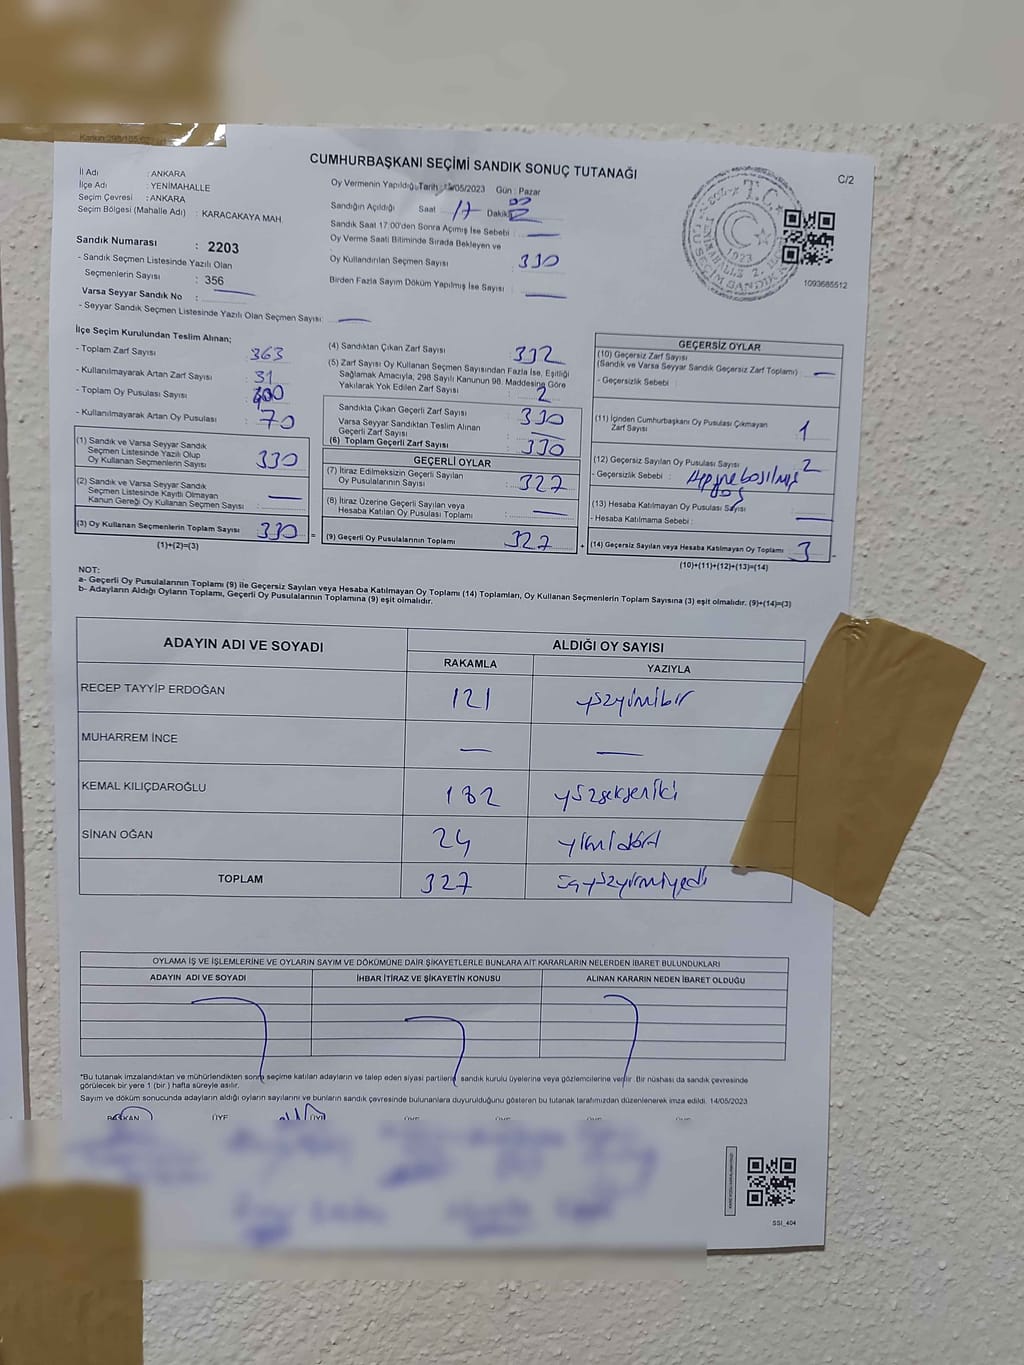 CUMHURBAŞKANI SEÇİMİ SANDIK SONUÇ TUTANAĞI
C/2
İl Adı : ANKARA
İlçe Adı : YENİMAHALLE
Seçim Çevresi : ANKARA
Seçim Bölgesi (Mahalle Adı) : KARACAKAYA MAH
Sandık Numarası : 2203
- Sandık Seçmen Listesinde Yazılı Olan
Seçmenlerin Sayısı : 356
Varsa Seyyar Sandık No :
- Seyyar Sandık Seçmen Listesinde Yazılı Olan Seçmen Sayısı:
Oy Vermenin Yapıldığı Tarih : 14/05/2023 Gün : Pazar
Sandığın Açıldığı Saat 17 Dakika
Sandık Saat 17:00'den Sonra Açılmış İse Sebebi :
Oy Verme Saati Bitiminde Sırada Bekleyen ve
Oy Kullandırılan Seçmen Sayısı : 330
Birden Fazla Sayım Döküm Yapılmış İse Sayısı :
T.C.
1923
1093685512
İlçe Seçim Kurulundan Teslim Alınan;
- Toplam Zarf Sayısı : 363
- Kullanılmayarak Artan Zarf Sayısı : 31
- Toplam Oy Pusulası Sayısı : 400
- Kullanılmayarak Artan Oy Pusulası : 70
(1) Sandık ve Varsa Seyyar Sandık
Seçmen Listesinde Yazılı Olup
Oy Kullanan Seçmenlerin Sayısı : 330
(2) Sandık ve Varsa Seyyar Sandık
Seçmen Listesinde Kayıtlı Olmayan
Kanun Gereği Oy Kullanan Seçmen Sayısı :
(3) Oy Kullanan Seçmenlerin Toplam Sayısı : 330
(1)+(2)=(3)
(4) Sandıktan Çıkan Zarf Sayısı : 332
(5) Zarf Sayısı Oy Kullanan Seçmen Sayısından Fazla İse, Eşitliği
Sağlamak Amacıyla, 298 Sayılı Kanunun 98. Maddesine Göre
Yakılarak Yok Edilen Zarf Sayısı : 2
Sandıkta Çıkan Geçerli Zarf Sayısı : 330
Varsa Seyyar Sandıktan Teslim Alınan
Geçerli Zarf Sayısı :
(6) Toplam Geçerli Zarf Sayısı : 330
GEÇERLİ OYLAR
(7) İtiraz Edilmeksizin Geçerli Sayılan
Oy Pusulalarının Sayısı : 327
(8) İtiraz Üzerine Geçerli Sayılan veya
Hesaba Katılan Oy Pusulası Toplamı :
(9) Geçerli Oy Pusulalarının Toplamı 327
GEÇERSİZ OYLAR
(10) Geçersiz Zarf Sayısı
(Sandık ve Varsa Seyyar Sandık Geçersiz Zarf Toplamı) :
- Geçersizlik Sebebi :
(11) İçinden Cumhurbaşkanı Oy Pusulası Çıkmayan
Zarf Sayısı : 1
(12) Geçersiz Sayılan Oy Pusulası Sayısı : 2
- Geçersizlik Sebebi :
(13) Hesaba Katılmayan Oy Pusulası Sayısı :
- Hesaba Katılmama Sebebi :
(14) Geçersiz Sayılan veya Hesaba Katılmayan Oy Toplamı : 3
(10)+(11)+(12)+(13)=(14)
NOT:
a- Geçerli Oy Pusulalarının Toplamı (9) ile Geçersiz Sayılan veya Hesaba Katılmayan Oy Toplamı (14) Toplamları, Oy Kullanan Seçmenlerin Toplam Sayısına (3) eşit olmalıdır. (9)+(14)=(3)
b- Adayların Aldığı Oyların Toplamı, Geçerli Oy Pusulalarının Toplamına (9) eşit olmalıdır.
ADAYIN ADI VE SOYADI ALDIĞI OY SAYISI
RAKAMLA YAZIYLA
RECEP TAYYİP ERDOĞAN 121 yüzyirmibir
MUHARREM İNCE
KEMAL KILIÇDAROĞLU 182 yüzsekseniki
SİNAN OĞAN 24 yirmidört
TOPLAM 327
OYLAMA İŞ VE İŞLEMLERİNE VE OYLARIN SAYIM VE DÖKÜMÜNE DAİR ŞİKAYETLERLE BUNLARA AİT KARARLARIN NELERDEN İBARET BULUNDUKLARI
ADAYIN ADI VE SOYADI İHBAR İTİRAZ VE ŞİKAYETİN KONUSU ALINAN KARARIN NEDEN İBARET OLDUĞU
*Bu tutanak imzalandıktan ve mühürlendikten sonra seçime katılan adayların ve talep eden siyasi partilerin sandık kurulu üyelerine veya gözlemcilerine verilir. Bir nüshası da sandık çevresinde
görülecek bir yere 1 (bir ) hafta süreyle asılır.
Sayım ve döküm sonucunda adayların aldığı oyların sayılarını ve bunların sandık çevresinde bulunanlara duyurulduğunu gösteren bu tutanak tarafımızdan düzenlenerek imza edildi. 14/05/2023
BAŞKAN ÜYE ÜYE
SSI_404